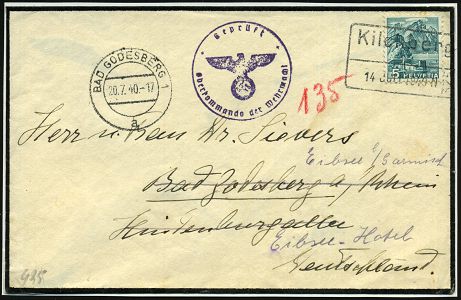 Geprüft
Oberkommando der Wehrmacht
BAD GODESBERG 1
20.7.40-17
a
Kilchberg
14
HELVETIA
135
Herrn u. Frau Dr. Sievers
Eibsee b/Garmisch
Bad Godesberg a/Rhein
Hindenburgallee
Eibsee-Hotel
Deutschland.
435